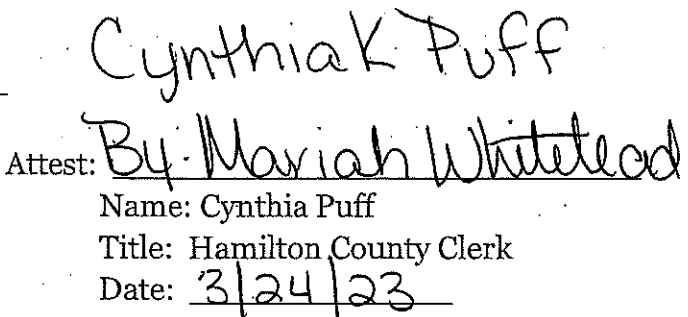 Cynthia K. Puff
Attest: By: Mariah Whitehead
Name: Cynthia Puff
Title: Hamilton County Clerk
Date: 3/24/23